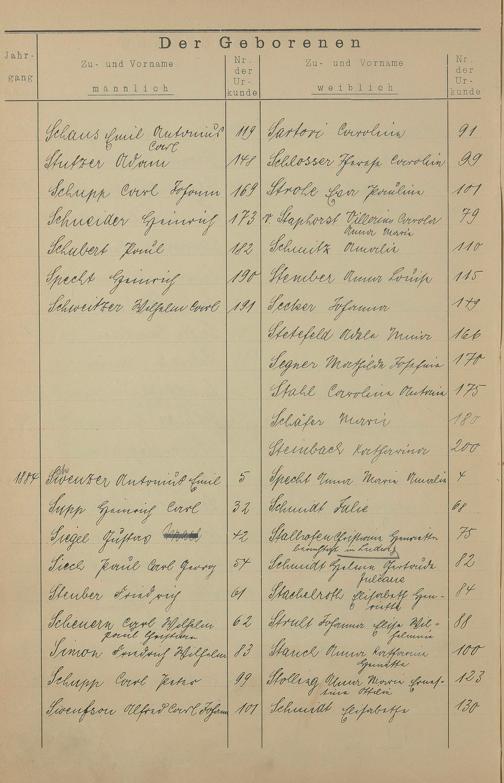 Der Geborenen
Jahr-
gang
Zu- und Vorname
männlich
Nr.
der
Ur-
kunde
Zu- und Vorname
weiblich
Nr.
der
Ur-
kunde
Schaus Emil Antonius 119 Sartori Carolina 91
Carl
Stutzer Adam 148 Schlosser Therese Carolina 99
Schupp Carl Johann 169 Strohe Eva Paulina 101
Schneider Heinrich 173 v. Staphorst Carola 79
Anna Maria
Schubert Paul 182 Schmitz Amalia 110
Specht Heinrich 190 Stember Anna Louise 115
Schweitzer Wilhelm Carl 191 Secker Johanna 149
Stetefeld Adele 166
Segner Mathilde Josefine 170
Stahl Carolina 175
Schäfer Marie 180
Steinbach Katharina 200
1884 Antonius Emil 5 Specht Anna Maria Amalia 4
Supp Heinrich Carl 32 Schmidt Julie 68
Siegel Gustav 42 Stalhofen Christiane Henriette 75
berichtigt in Ludwig
Siech Paul Carl Georg 54 Schmidt Helene Gertrude 82
Juliane
Steuber Friedrich 61 Stachelroth Elisabeth Hen- 84
riette
Scheuern Carl Wilhelm 62 Strult Johanna Elise Wil- 88
Paul Christian helmine
Simon Friedrich Wilhelm 83 Stauch Anna Katharina 100
Henriette
Schupp Carl Peter 99 Stolling Anna Maria Ernes- 123
tine Ottilie
Swenson Alfred Carl Johann 101 Schmidt Elisabethe 130